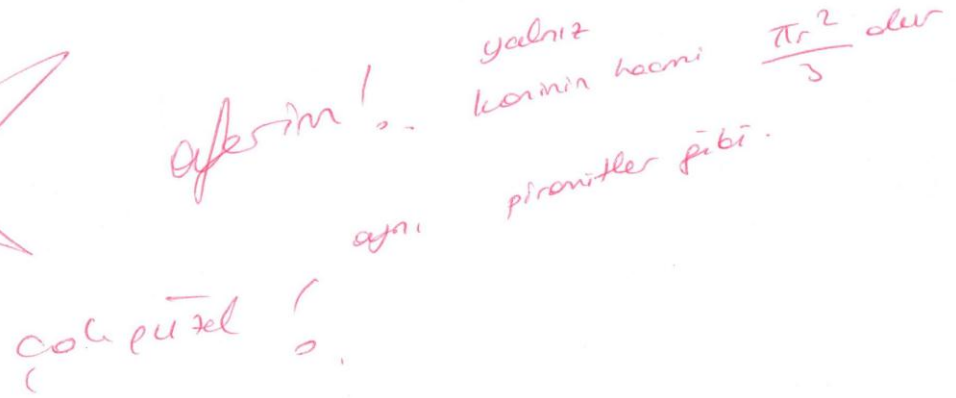 aferim!..
yalnız
koninin hacmi πr²/3 olur
aynı piramitler gibi.
çok güzel!..